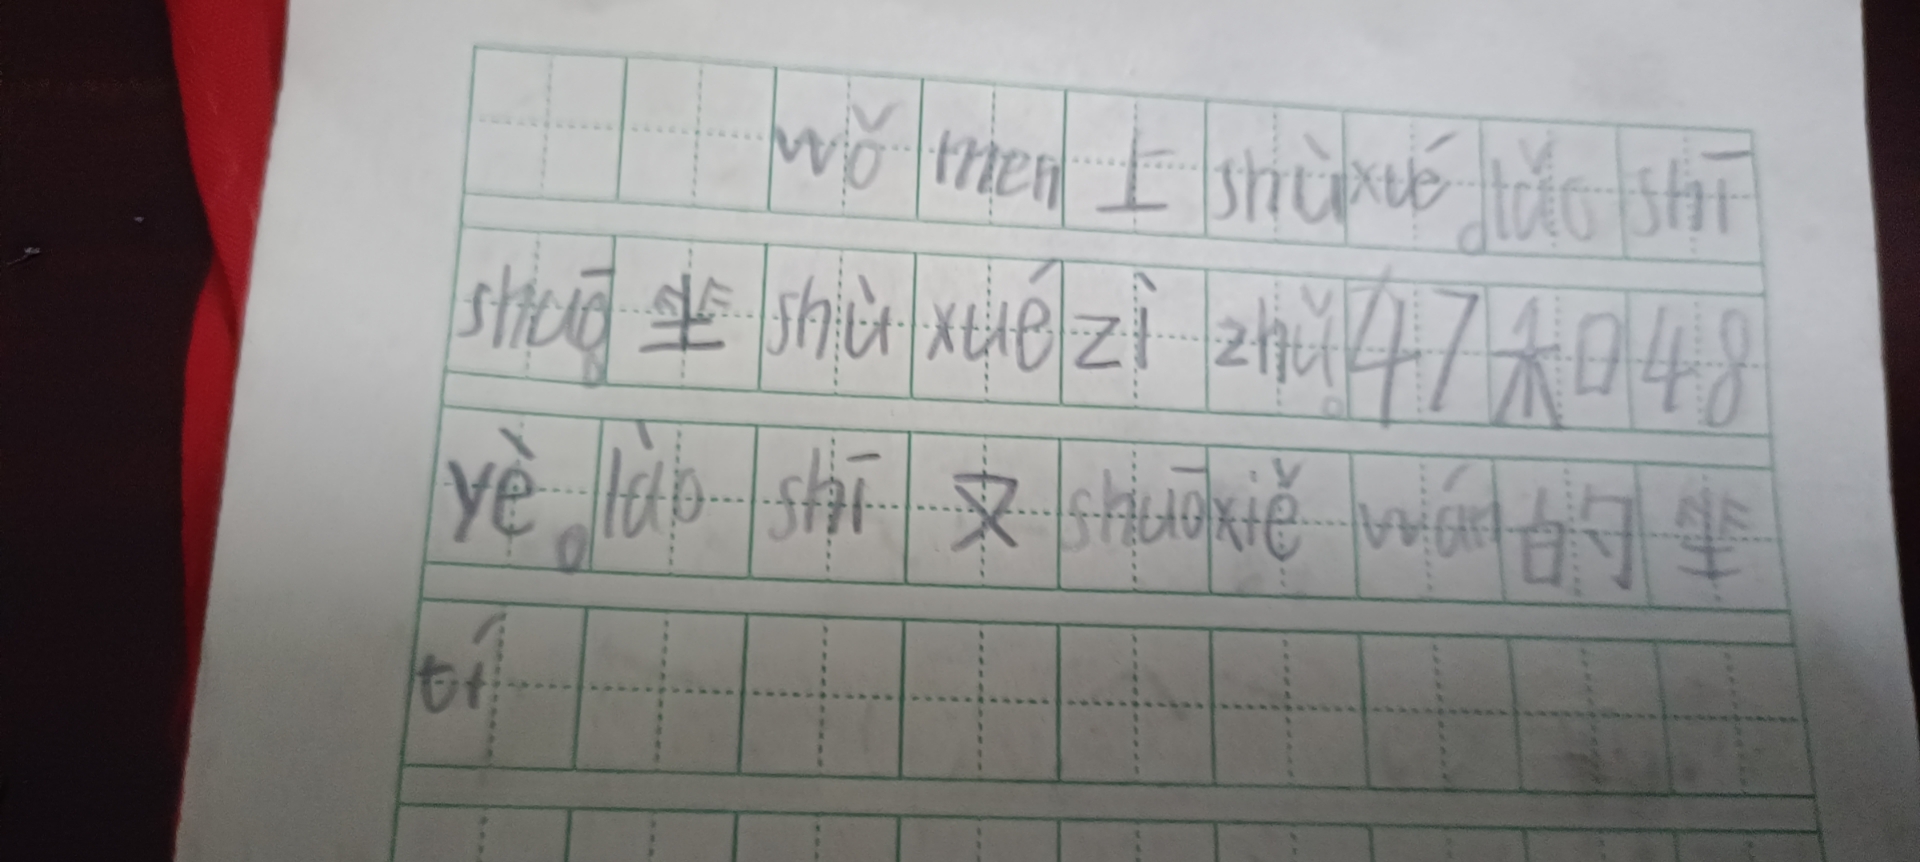 wǒ men 上 shù xué。lǎo shī
shuō。坐 shù xué zì zhǔ。47和48
yè。lào shī 又 shuō xiě wán 的 坐
tí